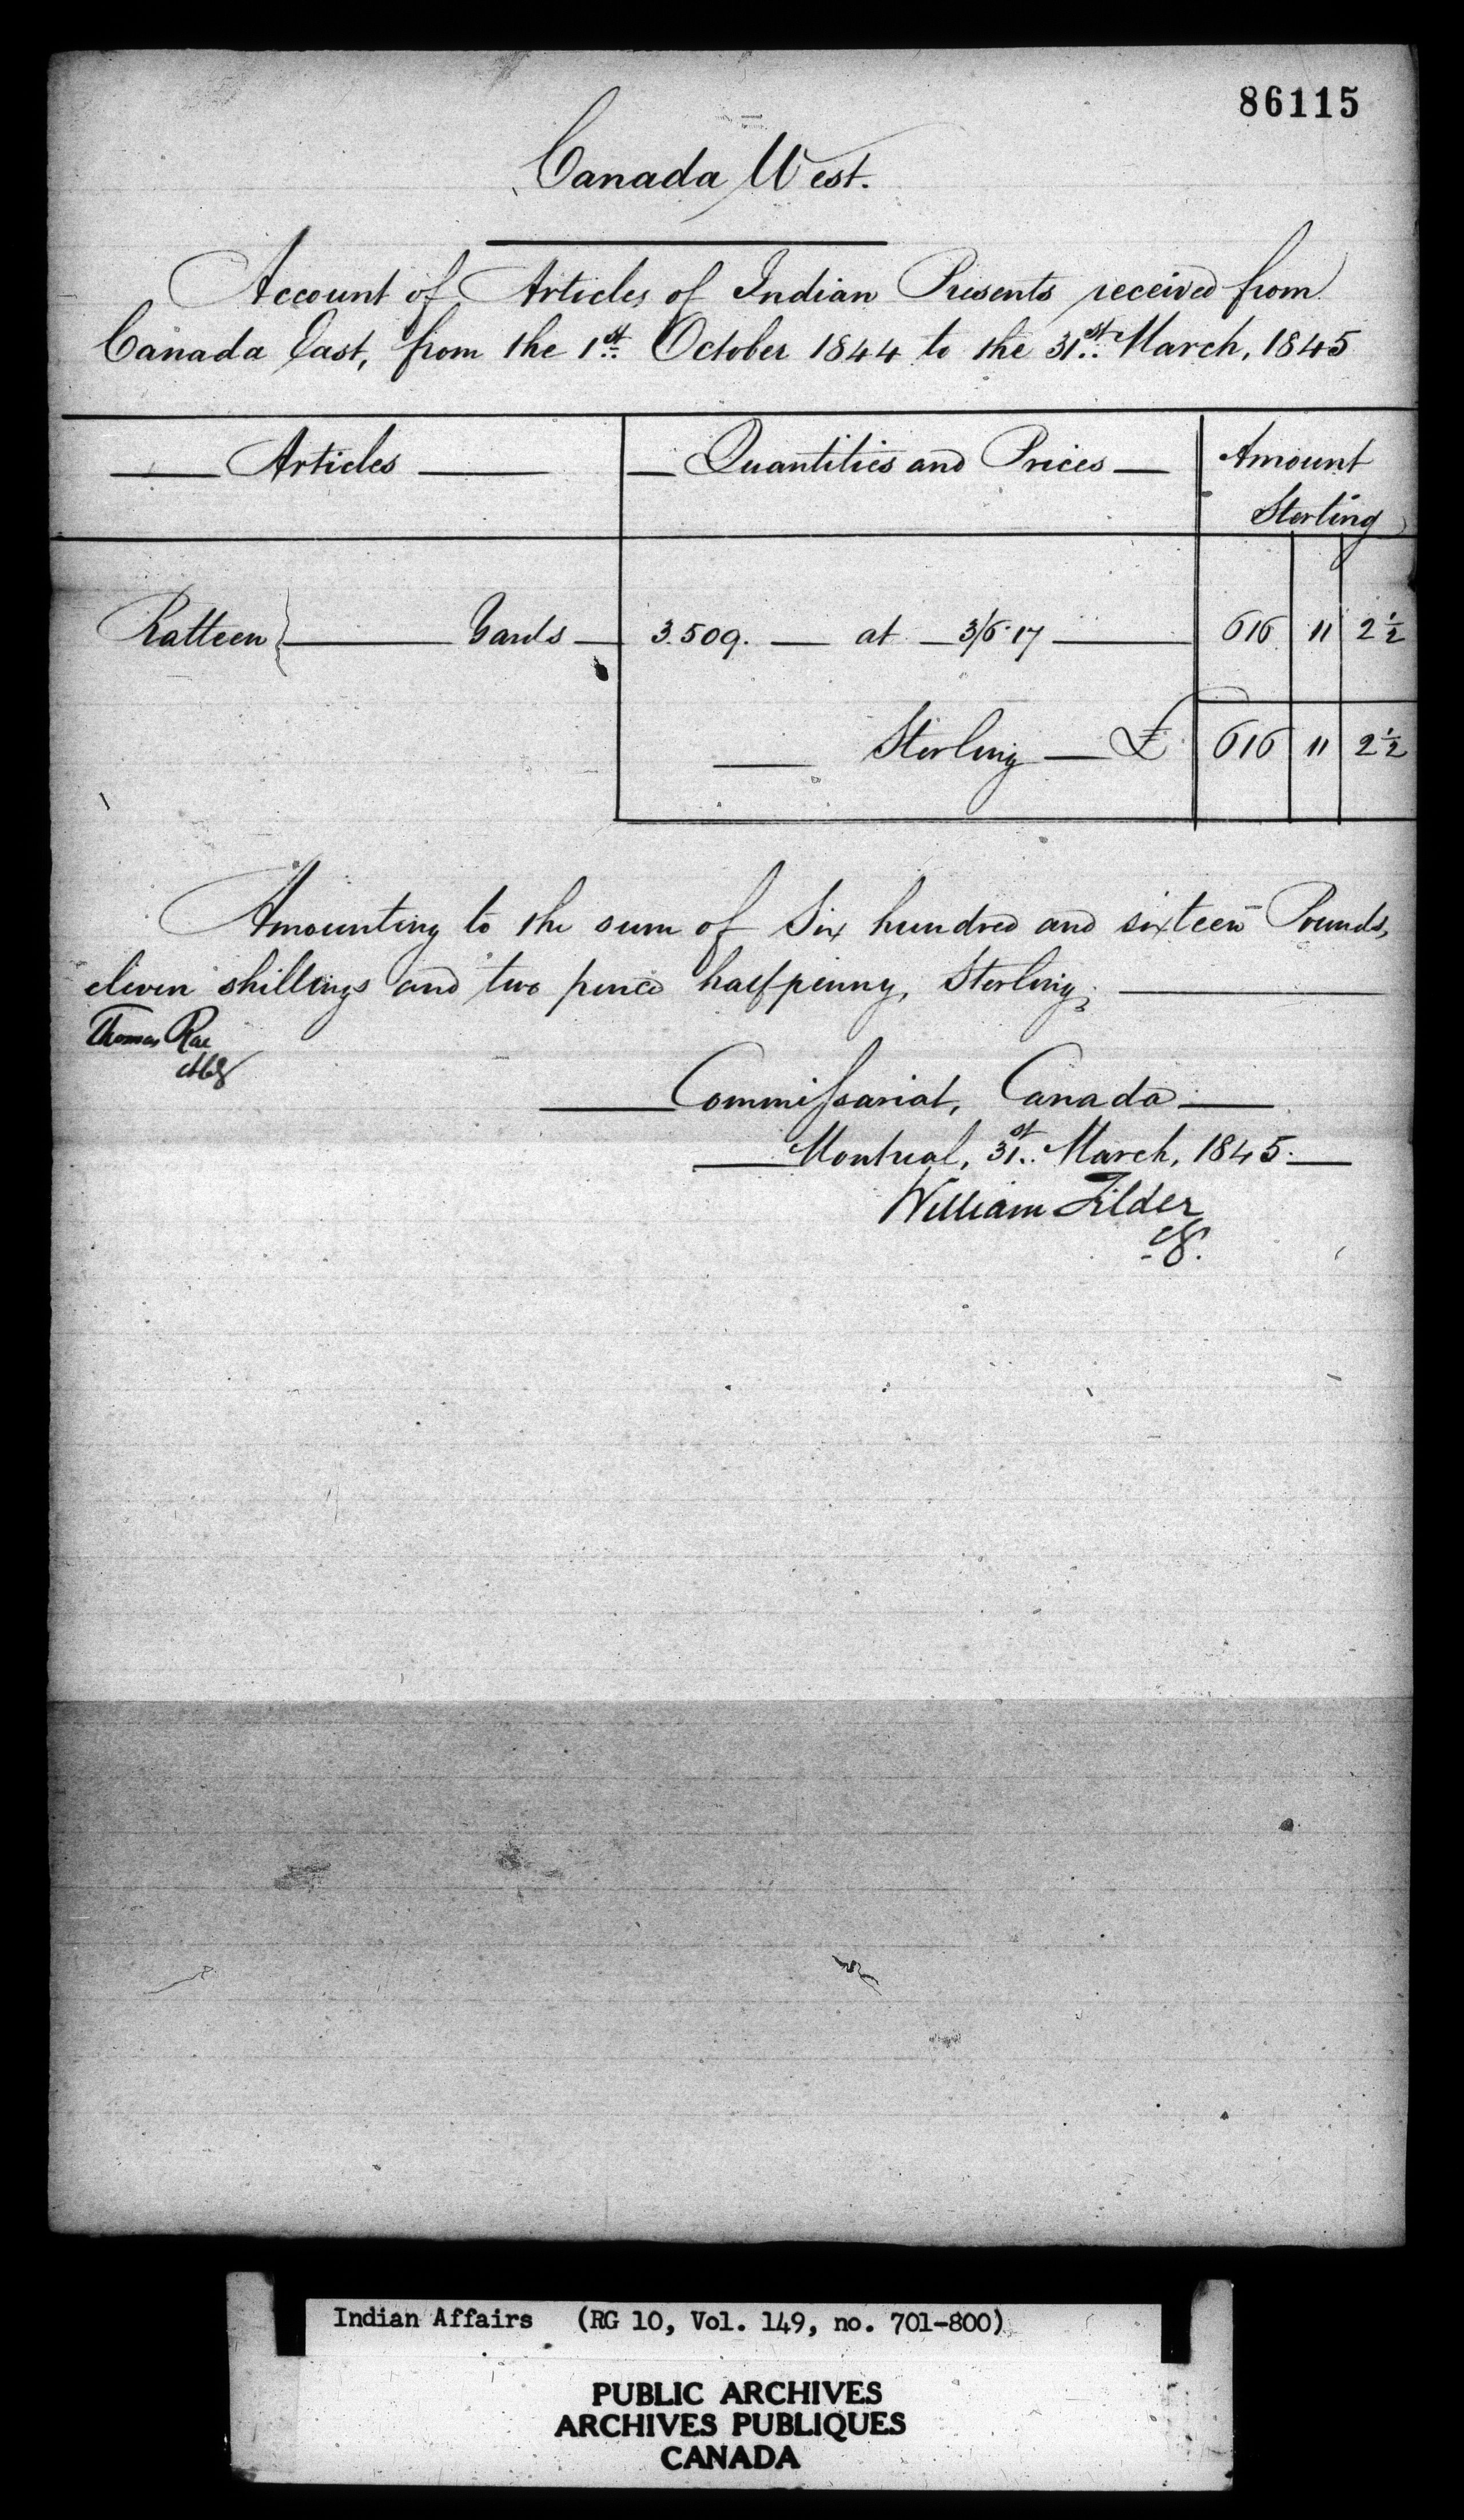 86115
Canada West.
Account of Articles of Indian Presents received from
Canada East, from the 1st October 1844 to the 31st March, 1845
Articles Quantities and Prices Amount
Sterling
Ratteen } Yards 3.509. at 3/6.17 616 11 2½
Sterling £ 616 11 2½
Amounting to the sum of Six hundred and sixteen Pounds,
eleven shillings and two pence halfpenny, Sterling.
Thomas Rae
Commissariat, Canada
Montreal, 31st March, 1845.
William Filder
Indian Affairs (RG 10, Vol. 149, no. 701-800)
PUBLIC ARCHIVES
ARCHIVES PUBLIQUES
CANADA